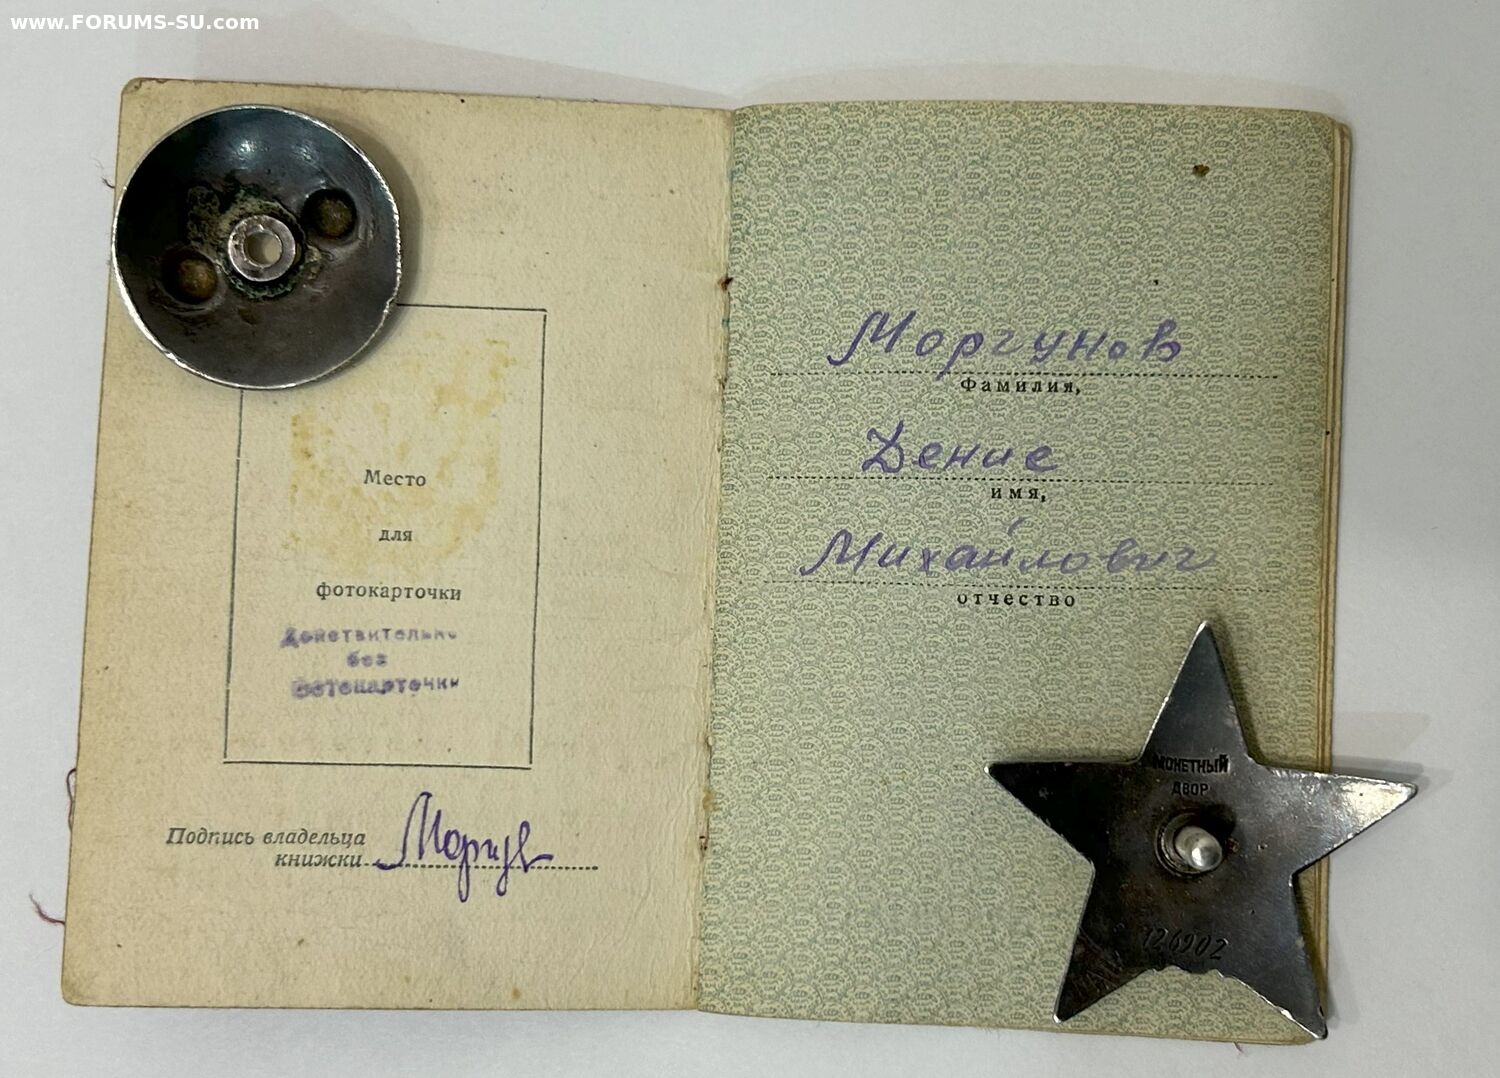 www.FORUMS-SU.com
Место
для
фотокарточки
Действительно
без
фотокарточки
Подпись владельца
книжки
Моргунов
Фамилия,
Денис
имя,
Михайлович
отчество
МОНЕТНЫЙ
ДВОР
126902